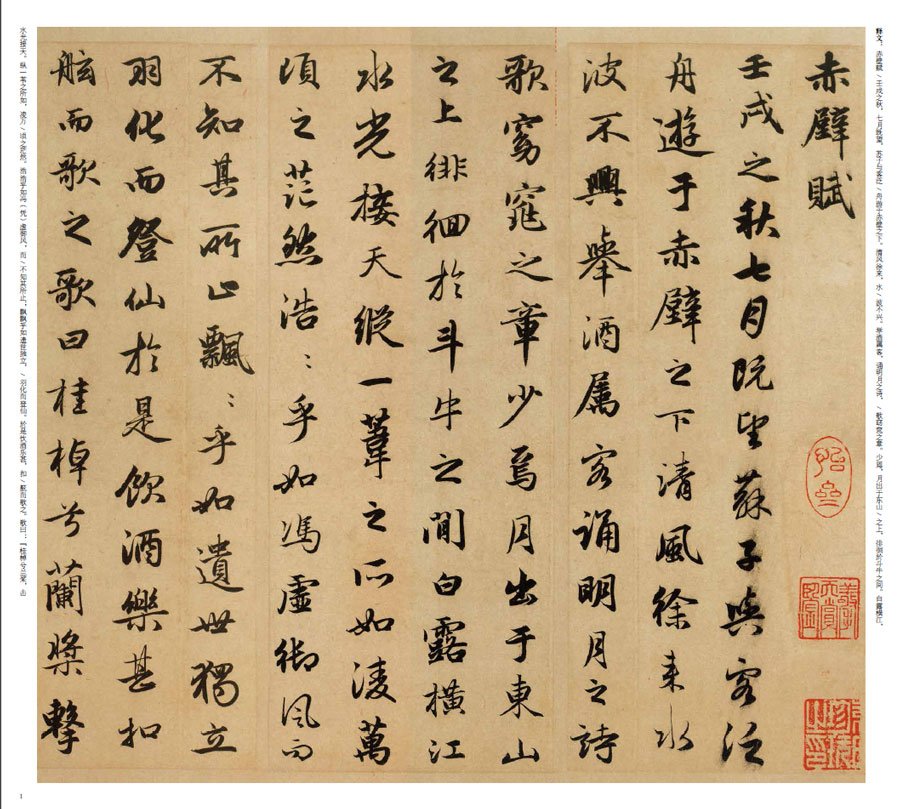 释文：赤壁赋\壬戌之秋，七月既望，苏子与客泛\舟游于赤壁之下。清风徐来，水\波不兴。举酒属客，诵明月之诗，\歌窈窕之章。少焉，月出于东山\之上，徘徊於斗牛之间。白露横江，
赤壁賦
壬戌之秋七月既望蘇子與客泛
舟遊于赤壁之下清風徐来水
波不興舉酒属客誦明月之詩
歌窈窕之章少焉月出于東山
之上徘徊於斗牛之間白露橫江
水光接天縱一葦之所如凌萬
頃之茫然浩〻乎如馮虛御風而
不知其所止飄〻乎如遺世獨立
羽化而登仙於是飲酒樂甚扣
舷而歌之歌曰桂棹兮蘭槳擊
水光接天。纵一苇之所如，凌万\顷之茫然。浩浩乎如冯（凭）虚御风，而\不知其所止；飘飘乎如遗世独立，\羽化而登仙。於是饮酒乐甚，扣\舷而歌之。歌曰：「桂棹兮兰桨，击
1